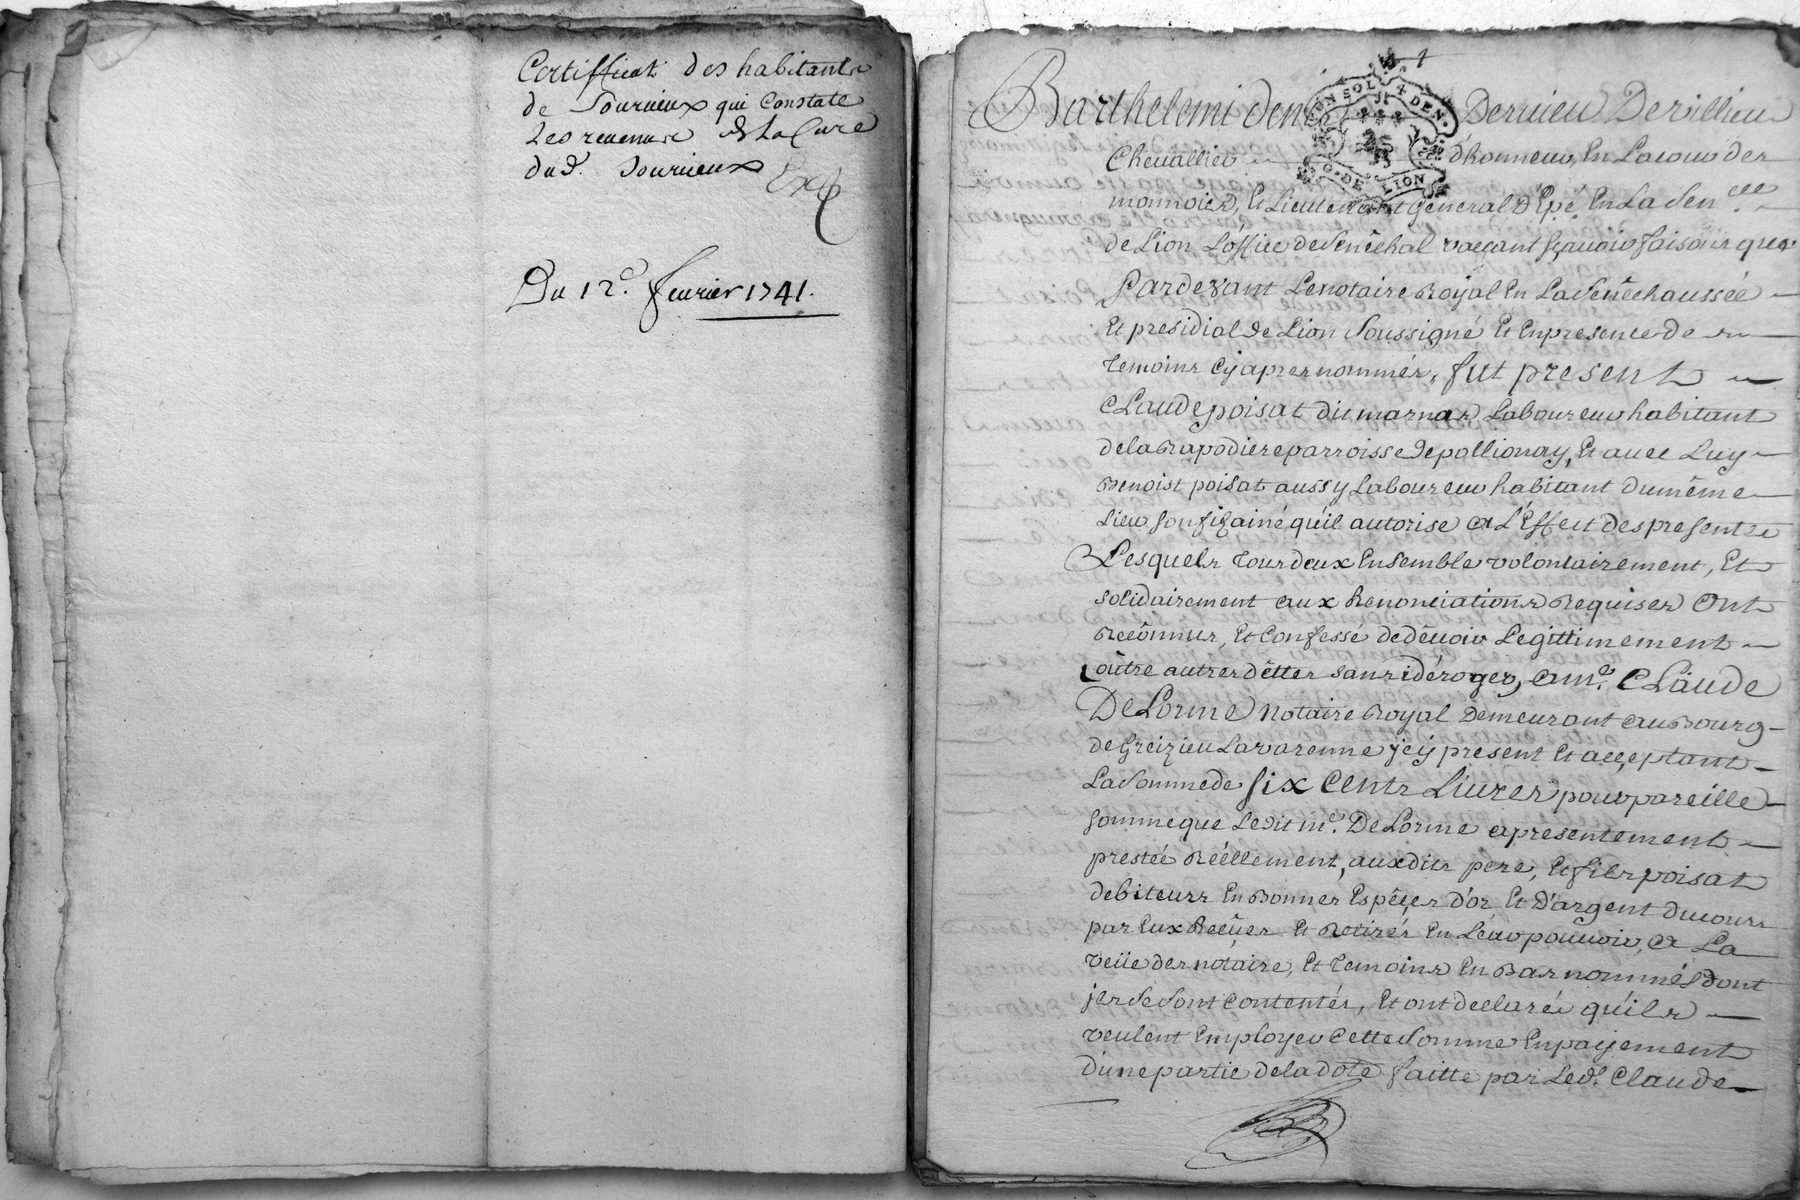 Certifficat des habitants
de Sourcieux qui Constate
Les revenus de La Cure
dud. Sourcieux
Du 12e. fevrier 1741.
Barthelemi denis Dervieu De villieu
Chevallier d'honneur, En La cour des
monnoies, Et Lieutenant général D'Epé En La Sen.cée
de Lion L'office de Sénêchal vaccant sçavoir faisons que
Pardevant Le notaire Royal En La Sénêchaussée
Et presidial de Lion Soussigné Et En presence des
temoins Cy apres nommés, fut present
Claude poisat dit marnas, Laboureur habitant
de la Rapodiere parroisse de pollionay, Et avec Luy
Benoist poisat aussy Laboureur habitant du même
Lieu son fiz ainé qu'il autorise a L'Effect des presentes
Lesquels tous deux Ensemble volontairement, Et
solidairement aux Renonciations Requises Ont
Recônnus, Et Confessé de dêvoir Legittimement
oûtre autres dêttes sans i déroger, a me. Claude
De Lorme Notaire Royal Demeurant au Bourg
de Greizieu La varenne jcy present Et acceptant
La Somme de Six Cents Livres pour pareille
somme que Ledit me. De Lorme a presentement
prestée Réêllement, auxdits pere, Et fils poisat
debiteurs En Bonnes Espêces d'or Et D'argent du cours
par Eux Reçües Et Retirés En Leur pouvoir, a La
veüe des notaire, Et temoins En Bas nommés dont
jls Se Sont Contentés, Et ont declaré qu'ils
veulent Employer Cette Somme En payement
D'une partie de la dote faitte par Led. Claude
EN SOL 4 DEN.
G. DE LION